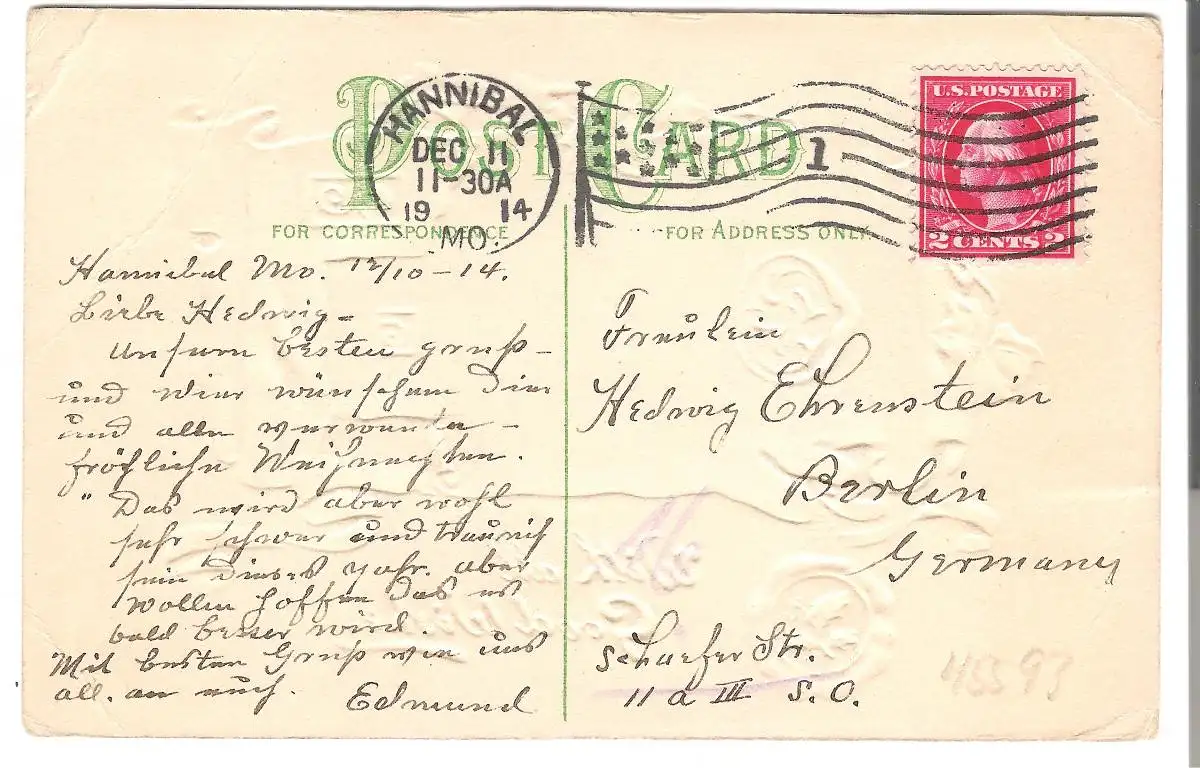 POST CARD
HANNIBAL
DEC 11
11-30A
19 14
MO.
1
U.S. POSTAGE
2 CENTS 2
FOR CORRESPONDENCE
FOR ADDRESS ONLY
Hannibal Mo. 12/10-14.
Liebe Hedwig =
Unsern besten gruß -
und wier wünschem Dier
und allen verwandte -
fröhliche Weihnachten.
" Das wird aber wohl
sehr schwer und traurich
sein Dieses yahr. aber
wollen hoffen Das es
bald besser wird.
Mit besten Gruß von uns
all. an euch.
Edmund
Fräulein
Hedwig Ehrenstein
Berlin
Germany
Schaefer Str.
11 a III S.O.
45593